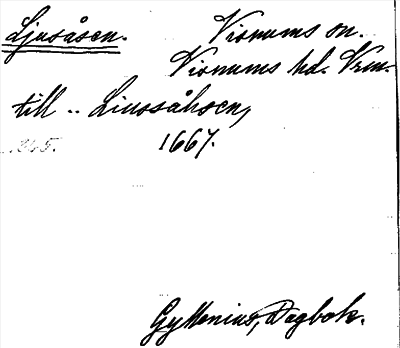 Ljusåsen. Visnums sn.
Visnums hd. Vrm.
till .. Liussåhsen,
1667.
Gyllenius, Dagbok.